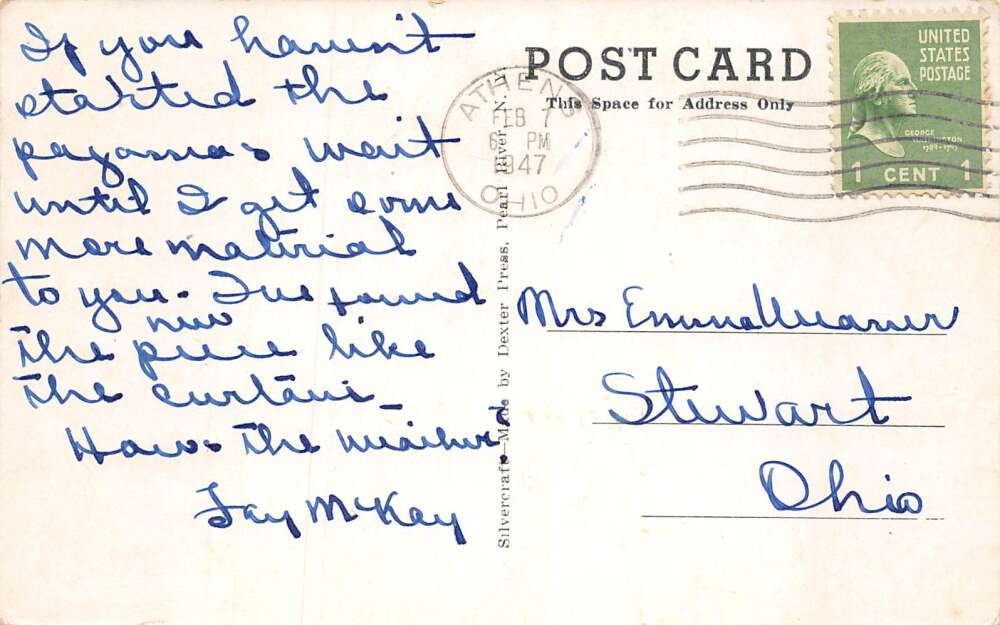 If you haven't
started the
pajamas wait
until I get some
more material
to you. I've found
new
the piece like
the curtain
How's the
Fay McKay
POST CARD
This Space for Address Only
ATHENS
FEB 7
6 PM
1947
OHIO
UNITED
STATES
POSTAGE
GEORGE
WASHINGTON
1789-1797
1 CENT 1
Silvercraft—Made by Dexter Press, Pearl River, N. Y.
Mrs Emma Weaver
Stewart
Ohio